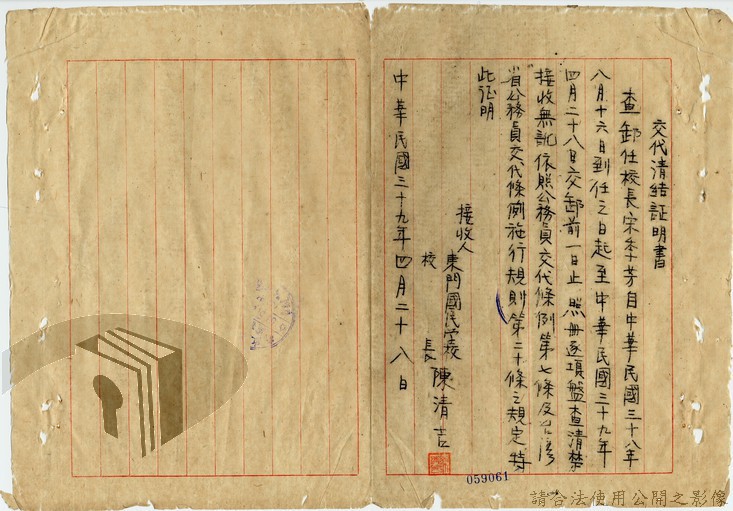 交代清結証明書
查卸任校長宋季芳自中華民國三十八年
八月十六日到任之日起至中華民國三十九年
四月二十八日交卸前一日止照册逐項盤查清楚
接收無訛依照公務員交代條例第七條及台湾
省公務員交代條例施行規則第二十條之規定特
此証明
接收人 東門國民学校
校長 陳清吉
中華民國三十九年四月二十八日
059061
請合法使用公開之影像